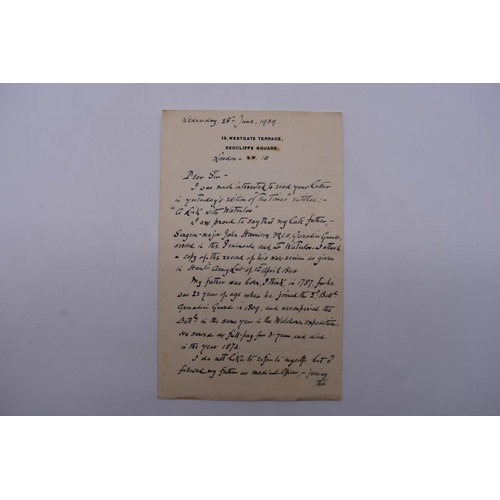 Wednesday, 28th June, 1939.
19, WESTGATE TERRACE,
REDCLIFFE SQUARE,
London – S.W. 10
Dear Sir –
I was much interested to read your letter
in yesterday's edition of "The Times" entitled :–
"A Link with Waterloo".
I am proud to say that my late father, –
Surgeon-major John Harrison, Grenadier Guards,
served in the Peninsula and at Waterloo. I attach
a copy of the record of his war-service as given
in Hart's Army List of 1st April 1840.
My father was born, I think, in 1787 for he
was 22 years of age when he joined the 3d Battn
Grenadier Guards in 1809, and accompanied the
Battn in the same year in the Walcheren expedition.
He served on full-pay for 31 years and died
in the year 1873.
I do not like to refer to myself but I
followed my father as medical officer, – joining
the